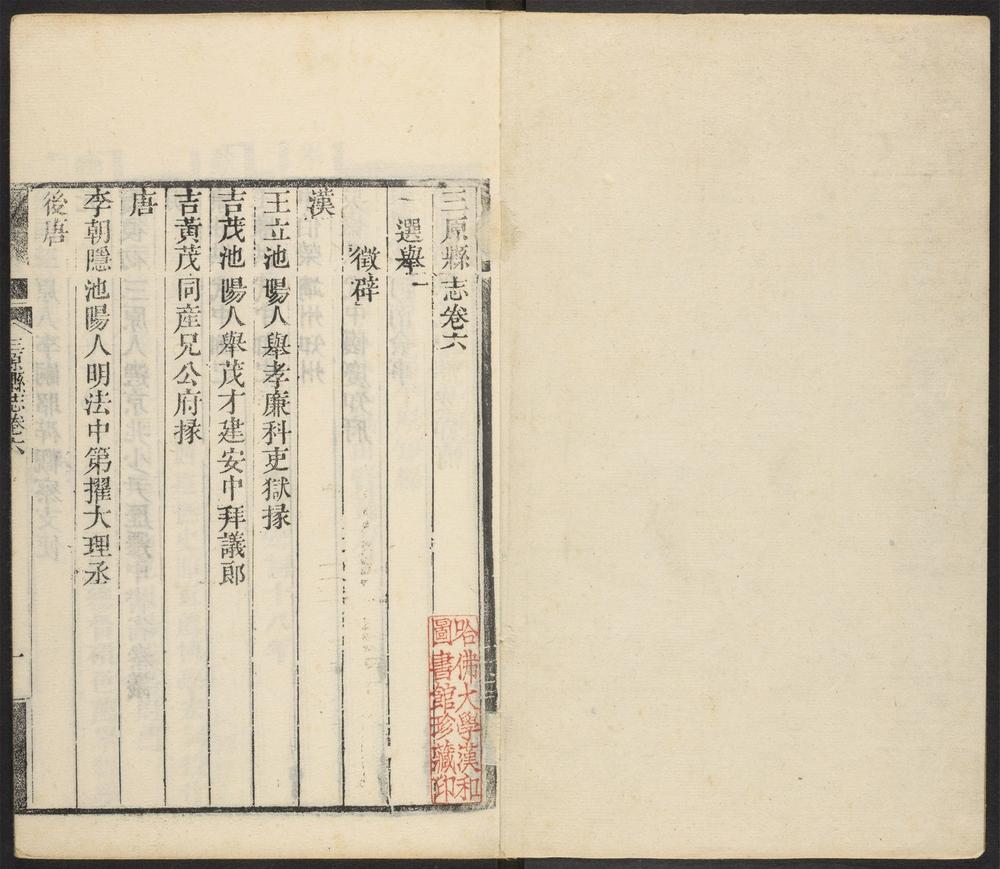 三原縣志卷六
選舉一
徵辟
漢
王立池陽人舉孝廉科吏獄掾
吉茂池陽人舉茂才建安中拜議郎
吉黃茂同産兄公府掾
唐
李朝隱池陽人明法中第擢大理丞
後唐
三原縣志卷六
一
哈佛大學漢和
圖書館珍藏印